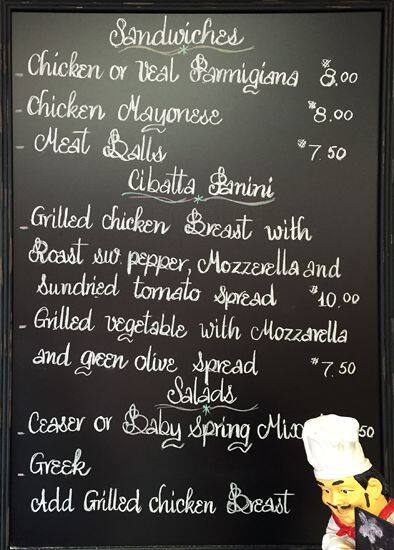 Sandwiches
- Chicken or Veal Parmigiana $8.00
- Chicken Mayonese $8.00
- Meat Balls $7.50
Cibatta Panini
- Grilled chicken Breast with
Roast sw. pepper, Mozzerella and
Sundried tomato spread $10.00
- Grilled vegetable with Mozzarella
and green olive spread $7.50
Salads
- Ceaser or Baby Spring
- Greek
Add Grilled chicken Breast